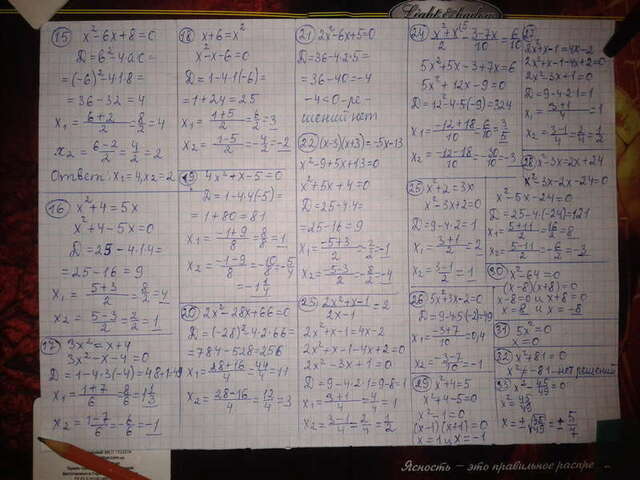 15 x²-6x+8=0
D=b²-4ac=
=(-6)²-4·1·8=
=36-32=4
x₁=(6+2)/2=8/2=4
x₂=(6-2)/2=4/2=2
Ответ: x₁=4, x₂=2
16 x²+4=5x
x²+4-5x=0
D=25-4·1·4=
=25-16=9
x₁=(5+3)/2=8/2=4
x₂=(5-3)/2=2/2=1
17 3x²=x+4
3x²-x-4=0
D=1-4·3(-4)=48+1=49
x₁=(1+7)/6=8/6=1 1/3
x₂=(1-7)/6=-6/6=-1
18 x+6=x²
x²-x-6=0
D=1-4·1(-6)=
=1+24=25
x₁=(1+5)/2=6/2=3
x₂=(1-5)/2=-4/2=-2
19 4x²+x-5=0
D=1-4·4(-5)=
=1+80=81
x₁=(-1+9)/8=8/8=1
x₂=(-1-9)/8=-10/8=-5/4
=-1 1/4
20 2x²-28x+66=0
D=(-28)²-4·2·66=
=784-528=256
x₁=(28+16)/4=44/4=11
x₂=(28-16)/4=12/4=3
21 2x²-6x+5=0
D=36-4·2·5=
=36-40=-4
-4<0-ре-
шений нет
22 (x-3)(x+3)=-5x-13
x²-9+5x+13=0
x²+5x+4=0
D=25-4·4=
=25-16=9
x₁=(-5+3)/2=-2/2=-1
x₂=(-5-3)/2=-8/2=-4
23 (2x²+x-1)/(2x-1)=2
2x²+x-1=4x-2
2x²+x-1-4x+2=0
2x²-3x+1=0
D=9-4·2·1=9-8=1
x₁=(3+1)/4=4/4=1
x₂=(3-1)/4=2/4=1/2
5x²+5x-3+7x=6
5x²+12x-9=0
D=12²-4·5(-9)=324
x₁=(-12+18)/10=6/10=3/5
x₂=(-12-18)/10=-30/10=-3
25 x²+2=3x
x²-3x+2=0
D=9-4·2=1
x₁=(3+1)/2=2
x₂=(3-1)/2=1
26 5x²+3x-2=0
D=9-4·5(-2)=49
x₁=(-3+7)/10=0,4
x₂=(-3-7)/10=-1
29 x²+4=5
x²+4-5=0
x²-1=0
(x-1)(x+1)=0
x=1 и x=-1
2x²+x-1=4x-2
2x²+x-1-4x+2=0
2x²-3x+1=0
D=9-4·2·1=1
x₁=(3+1)/4=1
x₂=(3-1)/4=2/4=1/2
28 x²-3x=2x+24
x²-3x-2x-24=0
x²-5x-24=0
D=25-4·(-24)=121
x₁=(5+11)/2=16/2=8
x₂=(5-11)/2=-6/2=-3
30 x²-64=0
(x-8)(x+8)=0
x-8=0 и x+8=0
x=8 и x=-8
31 5x²=0
x=0
32 x²+81=0
x²≠-81-нет решений
Ясность – это правильное распре